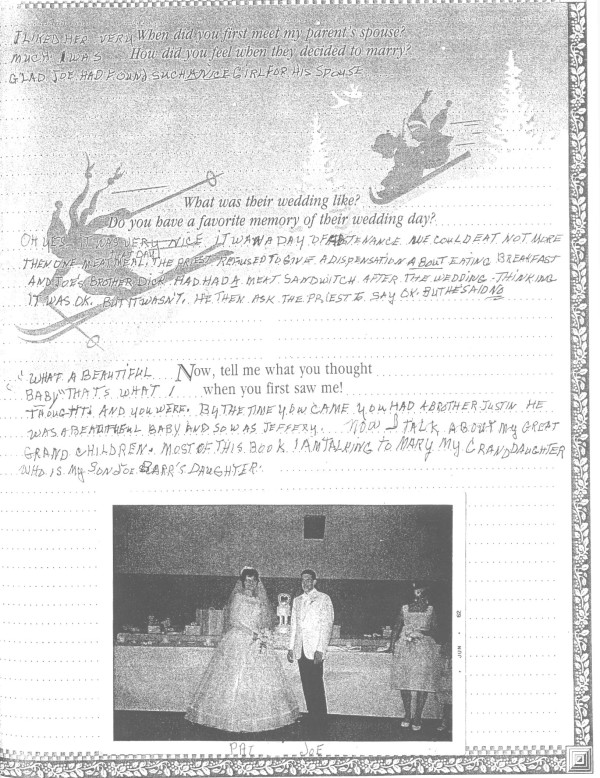 When did you first meet my parent's spouse?
How did you feel when they decided to marry?
I LIKED HER VERY
MUCH I WAS
GLAD JOE HAD FOUND SUCH A NICE GIRL FOR HIS SPOUSE
What was their wedding like?
Do you have a favorite memory of their wedding day?
OH YES IT WAS VERY NICE. IT WAN A DAY OF ABSTENANCE. WE COULD EAT NOT MORE
THEN ONE MEAT MEAL. THE PRIEST REFUSED TO GIVE A DISPENSATION ABOUT EATING BREAKFAST
AND JOE'S BROTHER DICK HAD HAD A MEAT SANDWITCH AFTER THE WEDDING - THINKING
IT WAS OK. BUT IT WASN'T. HE THEN ASK THE PRIEST TO SAY OK. BUT HE SAID NO
Now, tell me what you thought
when you first saw me!
"WHAT A BEAUTIFUL
BABY" THAT'S WHAT I
THOUGHT. AND YOU WERE. BY THE TIME YOU CAME YOU HAD A BROTHER JUSTIN HE
WAS A BEAUTIFUL BABY AND SO WAS JEFFERY. NOW I TALK ABOUT MY GREAT
GRAND CHILDREN. MOST OF THIS BOOK I AM TALKING TO MARY MY GRANDDAUGHTER
WHO IS MY SON JOE BARR'S DAUGHTER.
PAT JOE